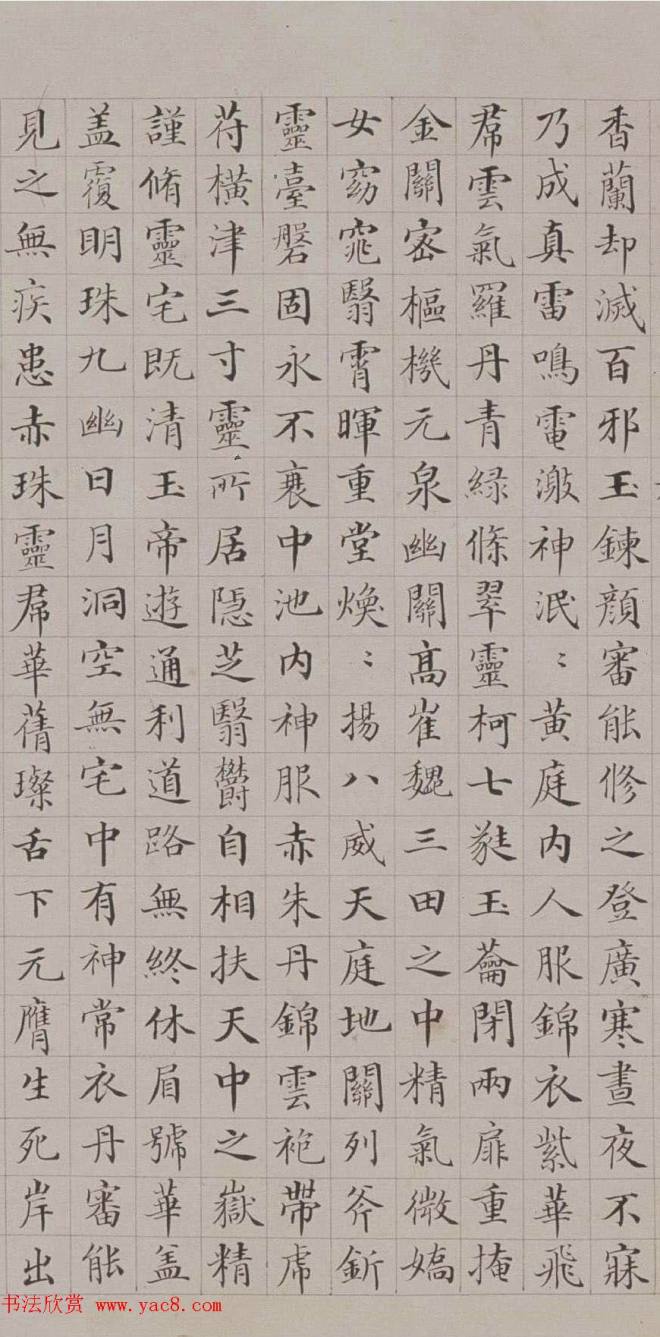 香蘭却滅百邪玉鍊顔審能修之登廣寒晝夜不寐
乃成真雷鳴電激神泯〻黄庭内人服錦衣紫華飛
帬雲氣羅丹青緑條翠靈柯七蕤玉蘥閉兩扉重掩
金關宻樞機元泉幽關髙崔巍三田之中精氣微嬌
女窈窕翳霄暉重堂煥〻揚八威天庭地關列斧釿
靈臺磐固永不衰中池内神服赤朱丹錦雲袍帶虎
苻橫津三寸靈所居隱芝翳鬱自相扶天中之嶽精
謹脩靈宅既清玉帝遊通利道路無終休眉號華盖
盖覆明珠九幽日月洞空無宅中有神常衣丹審能
見之無疾患赤珠靈帬華蒨璨舌下元膺生死岸出
书法欣赏 www.yac8.com